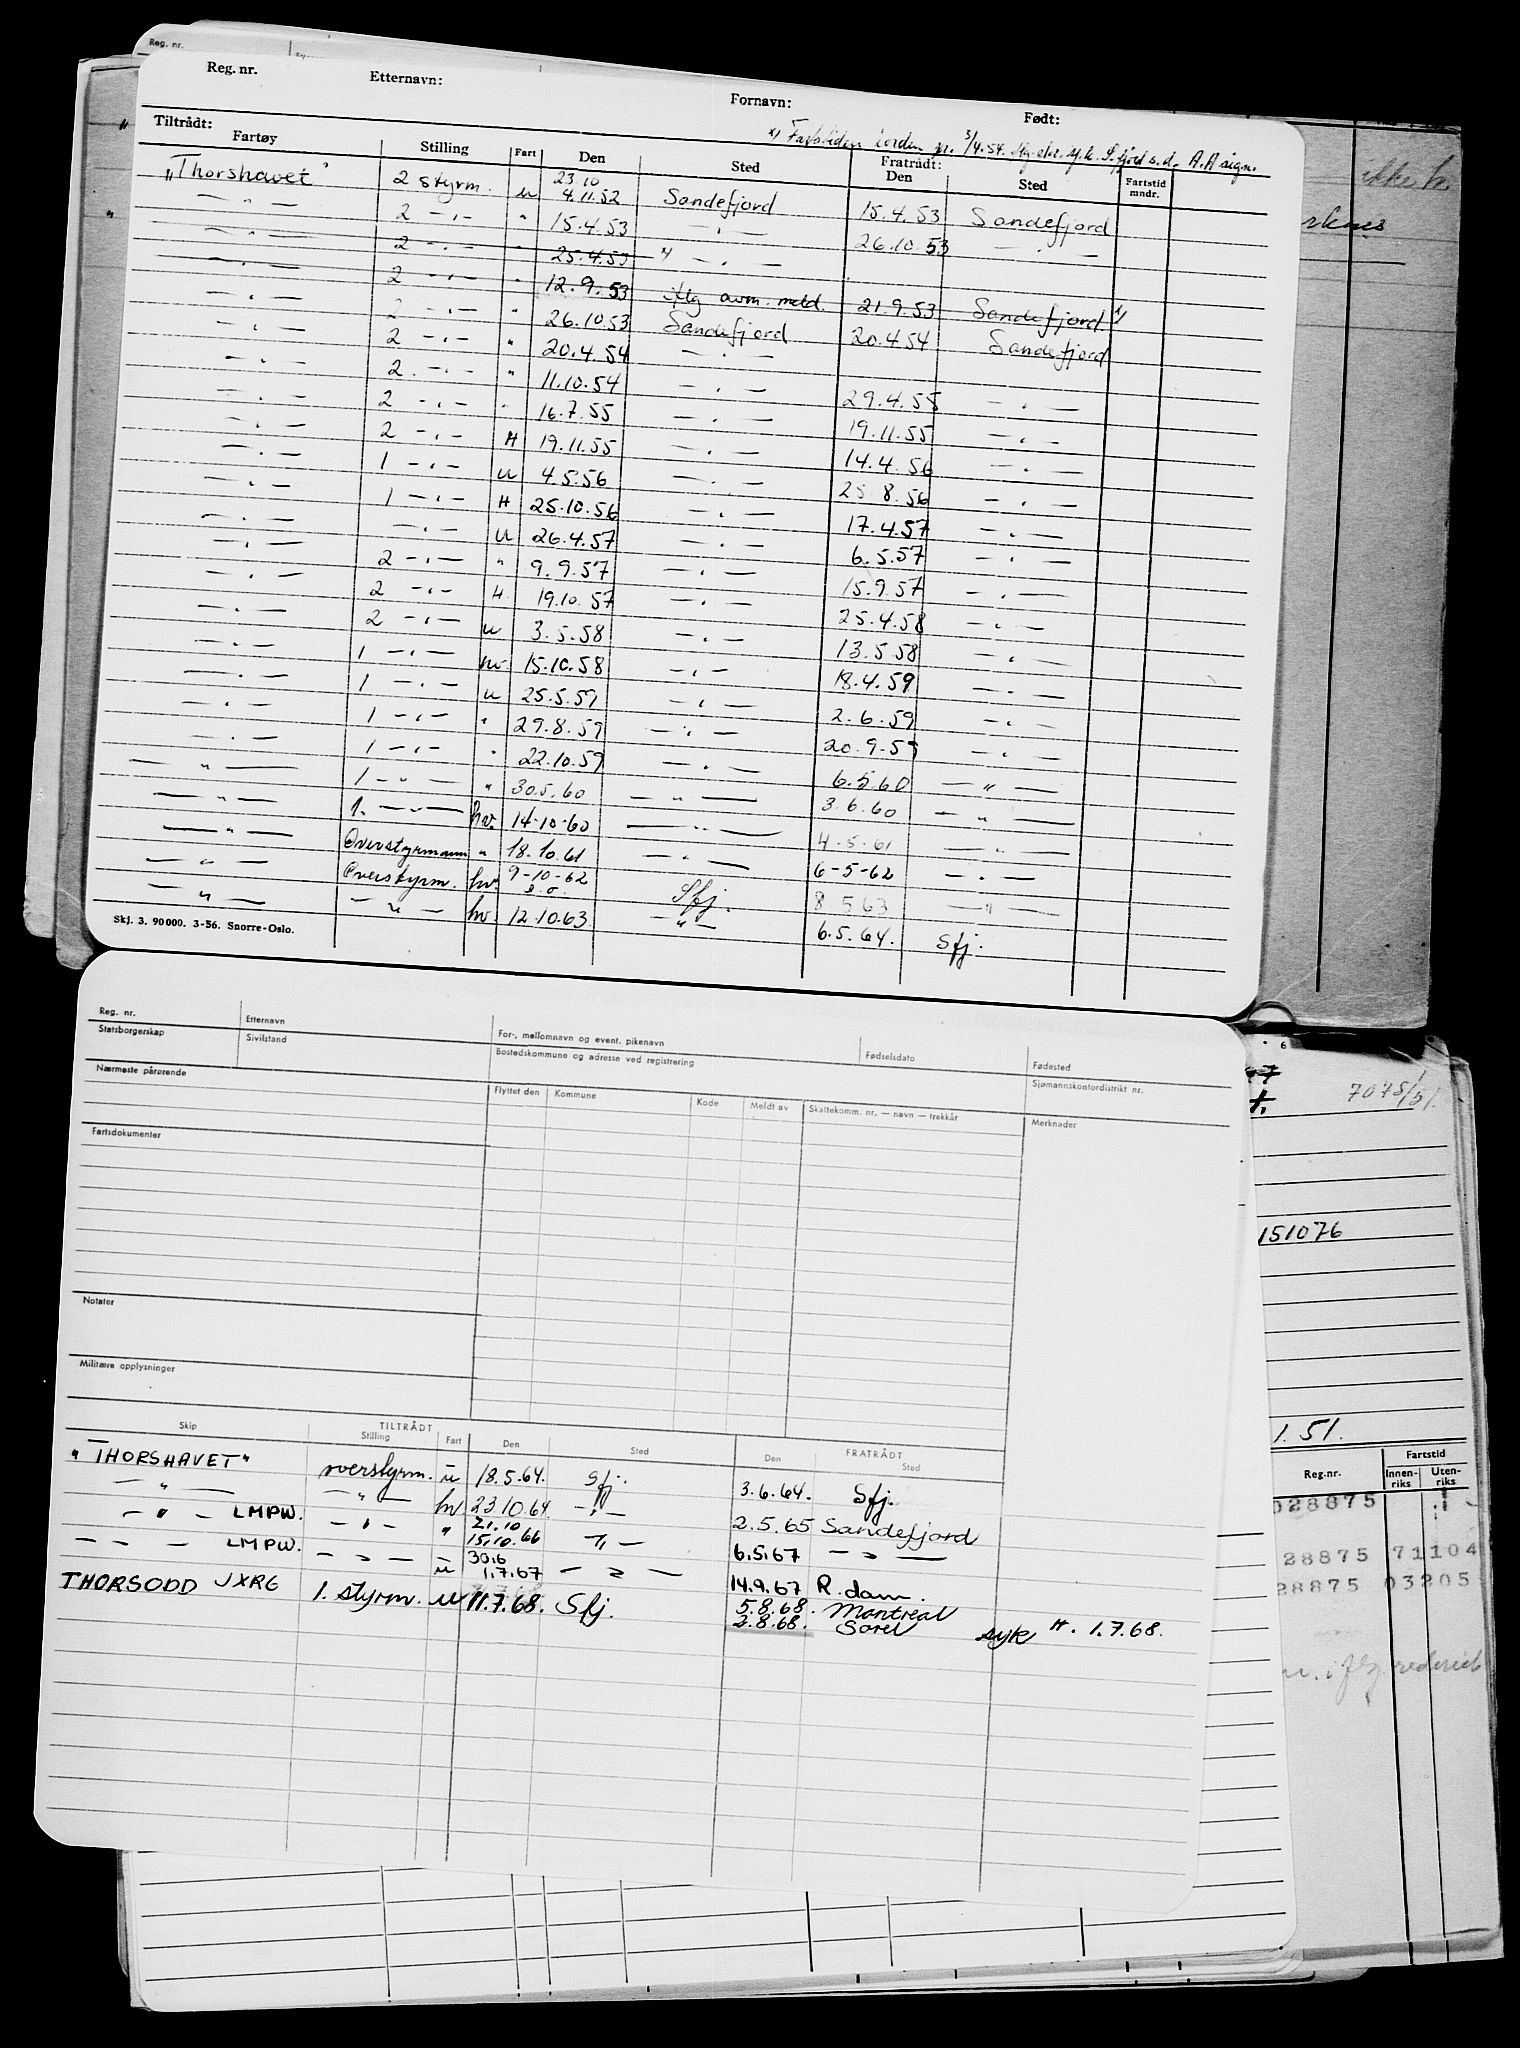 Reg. nr.
Reg. nr. Etternavn: Fornavn: Født:
Tiltrådt: Fratrådt:
Fartøy Stilling Fart Den Sted Den Sted Fartstid mndr.
"Thorshavet" 2 styrm. u 23.10 4.11.52 Sandefjord 15.4.53 Sandefjord
— " — 2 - " - " 15.4.53 — " — 26.10.53 — " —
— " — 2 - " - " 25.4.53 x) — " —
— " — 2 - " - " 12.9.53 iflg avm. meld. 21.9.53 Sandefjord x)
— " — 2 - " - " 26.10.53 Sandefjord 20.4.54 Sandefjord
— " — 2 - " - " 20.4.54 — " —
— " — 2 - " - " 11.10.54 — " — 29.4.55 — " —
— " — 2 - " - " 16.7.55 — " — 19.11.55 — " —
— " — 2 - " - H 19.11.55 — " — 14.4.56 — " —
— " — 1 - " - u 4.5.56 — " — 25.8.56 — " —
— " — 1 - " - H 25.10.56 — " — 17.4.57 — " —
— " — - " - u 26.4.57 — " — 6.5.57 — " —
— " — 2 - " - " 9.9.57 — " — 15.9.57 — " —
— " — 2 - " - H. 19.10.57 — " — 25.4.58 — " —
— " — 2 - " - u 3.5.58 — " — 13.5.58 — " —
— " — 1 - " - hv. 15.10.58 — " — 18.4.59 — " —
— " — 1 - " - u 25.5.59 — " — 2.6.59 — " —
— " — 1 - " - " 29.8.59 — " — 20.9.59 — " —
— " — 1 - " - " 22.10.59 — " — 6.5.60 — " —
— " — 1 - " - " 30.5.60 — " — 3.6.60 — " —
— " — 1. - " - hv. 14-10-60 — " — 4-5-61 — " —
— " — Overstyrmann " 18.10.61 — " — 6-5-62 — " —
— " — Overstyrm. hv 9-10-62 Sfj. 8 5 63 — " —
— " — - " - hv. 12.10.63 — " — 6.5.64. Sfj.
Skj. 3. 90 000. 3-56. Snorre-Oslo.
Reg. nr. Etternavn For-, mellomnavn og event. pikenavn Fødselsdato Fødested
Statsborgerskap Sivilstand Bostedskommune og adresse ved registrering Sjømannskontordistrikt nr.
Nærmeste pårørende Flyttet den Kommune Kode Meldt av Skattekomm. nr. — navn — trekkår Merknader
Fartsdokumenter
Notater
Militære opplysninger
TILTRÅDT FRATRÅDT
Skip Stilling Fart Den Sted Den Sted
"THORSHAVET" overstyrm. u 18.5.64. Sfj. 3.6.64. Sfj.
— " — — " — hv 23.10.64 — " — 2.5.65 Sandefjord
— " — LMPW. — " — " 21.10 15.10.66 — " — 6.5.67 — " —
— " — LMPW. — " — u 30.6 1.7.67 — " — 14.9.67 R.dam.
THORSODD JXRG 1. styrm. u 11.7.68. Sfj. 5.8.68. Montreal
2.8.68. Sorel syk H. 1.7.68.
ikke
7075/51.
151076
1.51.
Reg.nr. Fartstid
Innen-riks Uten-riks
028875
28875 71104
28875 03205